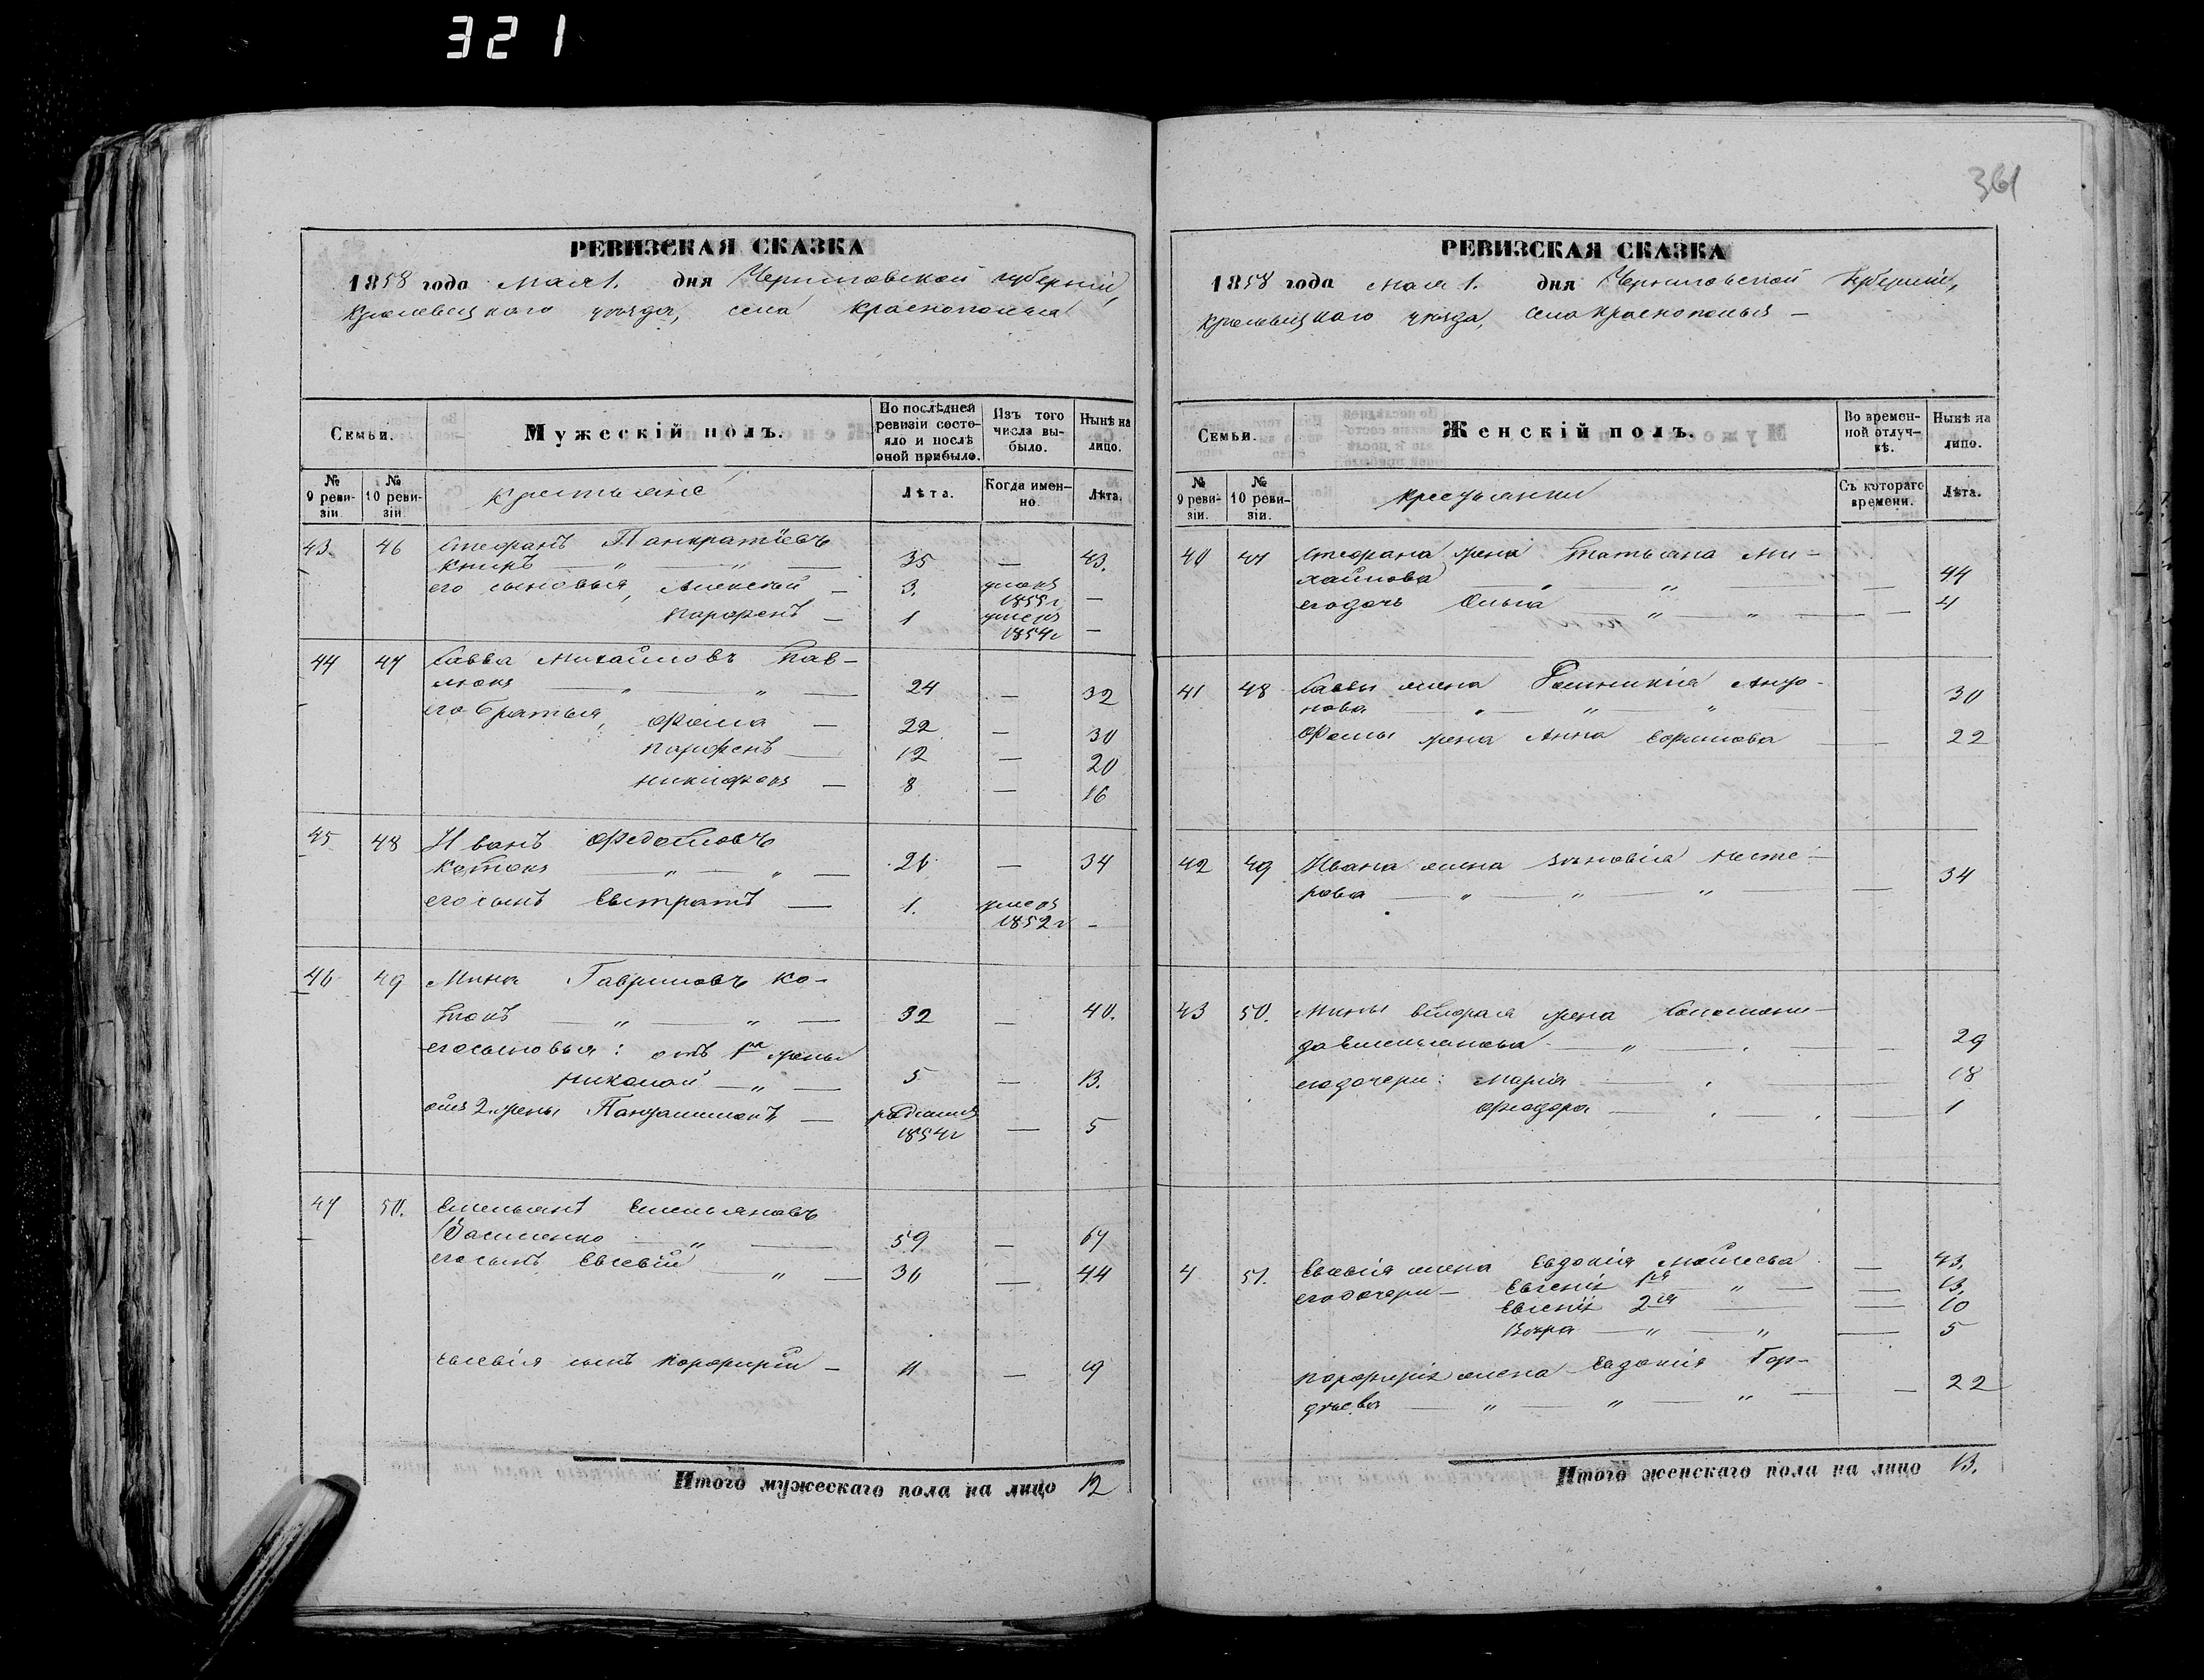 321
361
РЕВИЗСКАЯ СКАЗКА
1858 года мая 1. дня Черниговской губерніи,
Кролевецкого уѣзда, села Краснополья
Семьи.
Мужескій полъ.
По послѣдней ревизіи состояло и послѣ оной прибыло.
Изъ того числа выбыло.
Нынѣ на лицо.
№ 9 ревизіи
№ 10 ревизіи
Крестьяне
Лѣта.
Когда именно.
Лѣта.
43 46 Стефанъ Панкратіевъ
35 — 43.
его сыновья, Алексѣй — 3. умеръ 1855 г —
Парфенъ — 1 умеръ 1854 г —
44 47 Савва Михайловъ Пав-
люкъ — 24 — 32
его братья, Фома — 22 — 30
Парфенъ — 12 — 20
Никифоръ — 8 — 16
45 48 Иванъ Федотовъ
Котокъ — 26 — 34
его сынъ Евстратъ — 1. умеръ 1852 г —
46 49 Мина Гавриловъ Ко-
токъ — 32 — 40.
его сыновья: отъ 1й жены
Николай — 5 — 13.
отъ 2й жены Пантелимонъ — родился 1854 г — 5
47 50. Емельянъ Емельяновъ
Василенко — 59 — 67
его сынъ Евсевій — 36 — 44
Евсевія сынъ Порфирій — 11 — 19
Итого мужескаго пола на лицо 12
РЕВИЗСКАЯ СКАЗКА
1858 года мая 1. дня Черниговской губерніи,
Кролевецкого уѣзда, села Краснополья —
Семьи.
Женскій полъ.
Во временной отлучкѣ.
Нынѣ на лицо.
№ 9 ревизіи.
№ 10 ревизіи.
Крестьянки
Съ котораго времени.
Лѣта.
40 47 Стефана жена Татьяна Ми-
хайлова — 44
его дочь Ольга — 4
41 48 Саввы жена Анто-
нова — 30
Фомы жена Анна Ефимова — 22
42 49 Ивана жена Зѣновія Несте-
рова — 34
43 50. Мины вторая жена Соломони-
да Емельянова — 29
его дочери: Марія — 18
Феодора — 1
4 51. Евсевія жена Евдокія Моисеева — 43,
его дочери — Евгенія 1я — 13,
Евгенія 2я — 10
Вѣра — 5
Порфирія жена Евдокія Гор-
дѣева — 22
Итого женскаго пола на лицо 13.